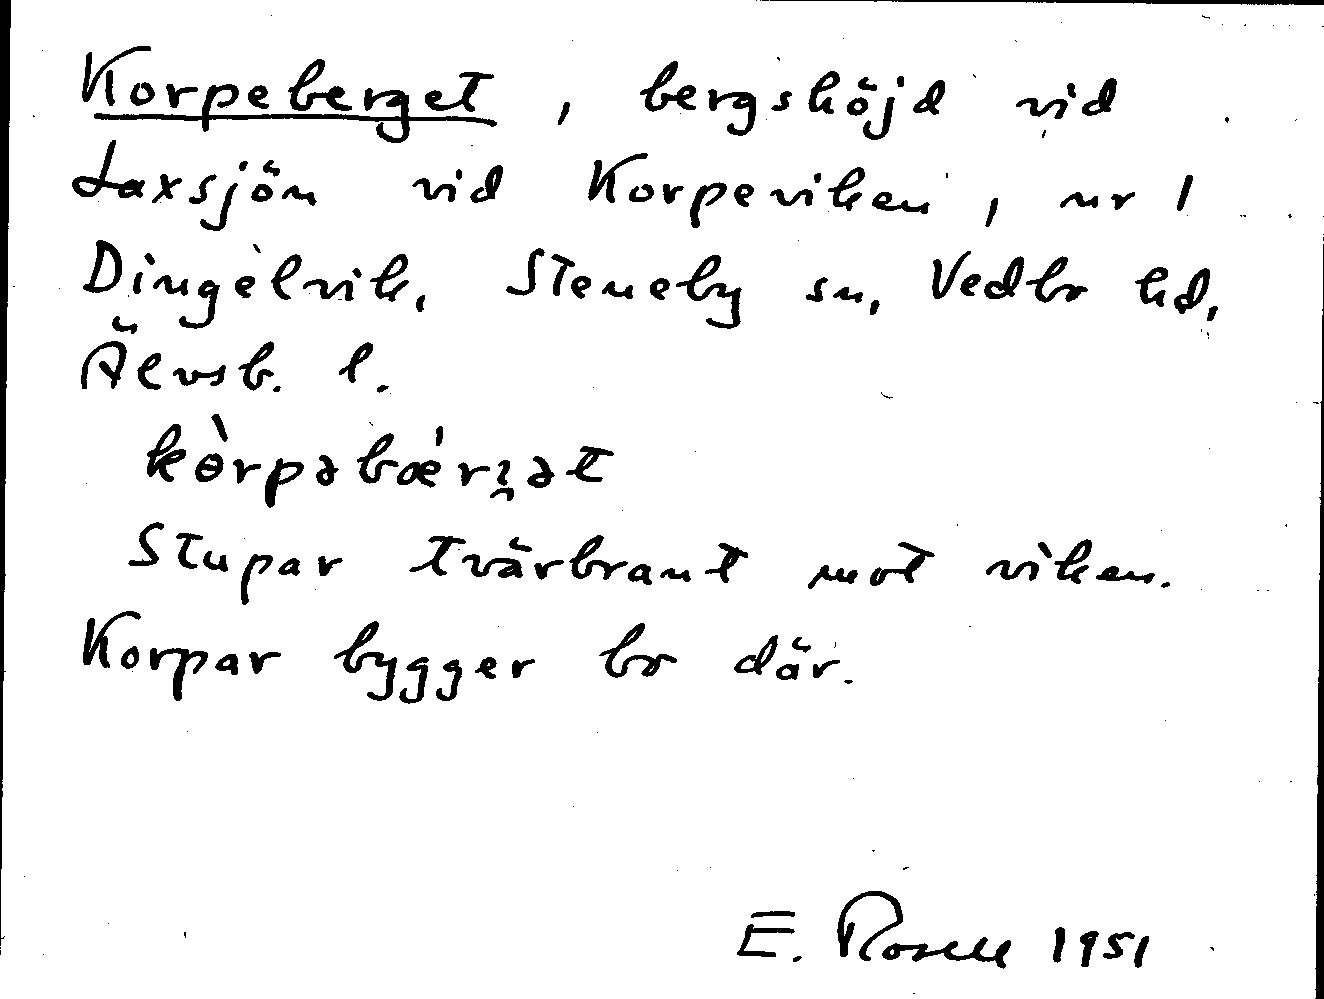 Korpeberget, bergshöjd vid
Laxsjön vid Korpeviken, nr 1
Dingelvik, Steneby sn, Vedbo hd,
Älvsb. l.
kɵ̀rpəbǽrʒət
Stupar tvärbrant mot viken.
Korpar bygger bo där.
E. Rosell 1951